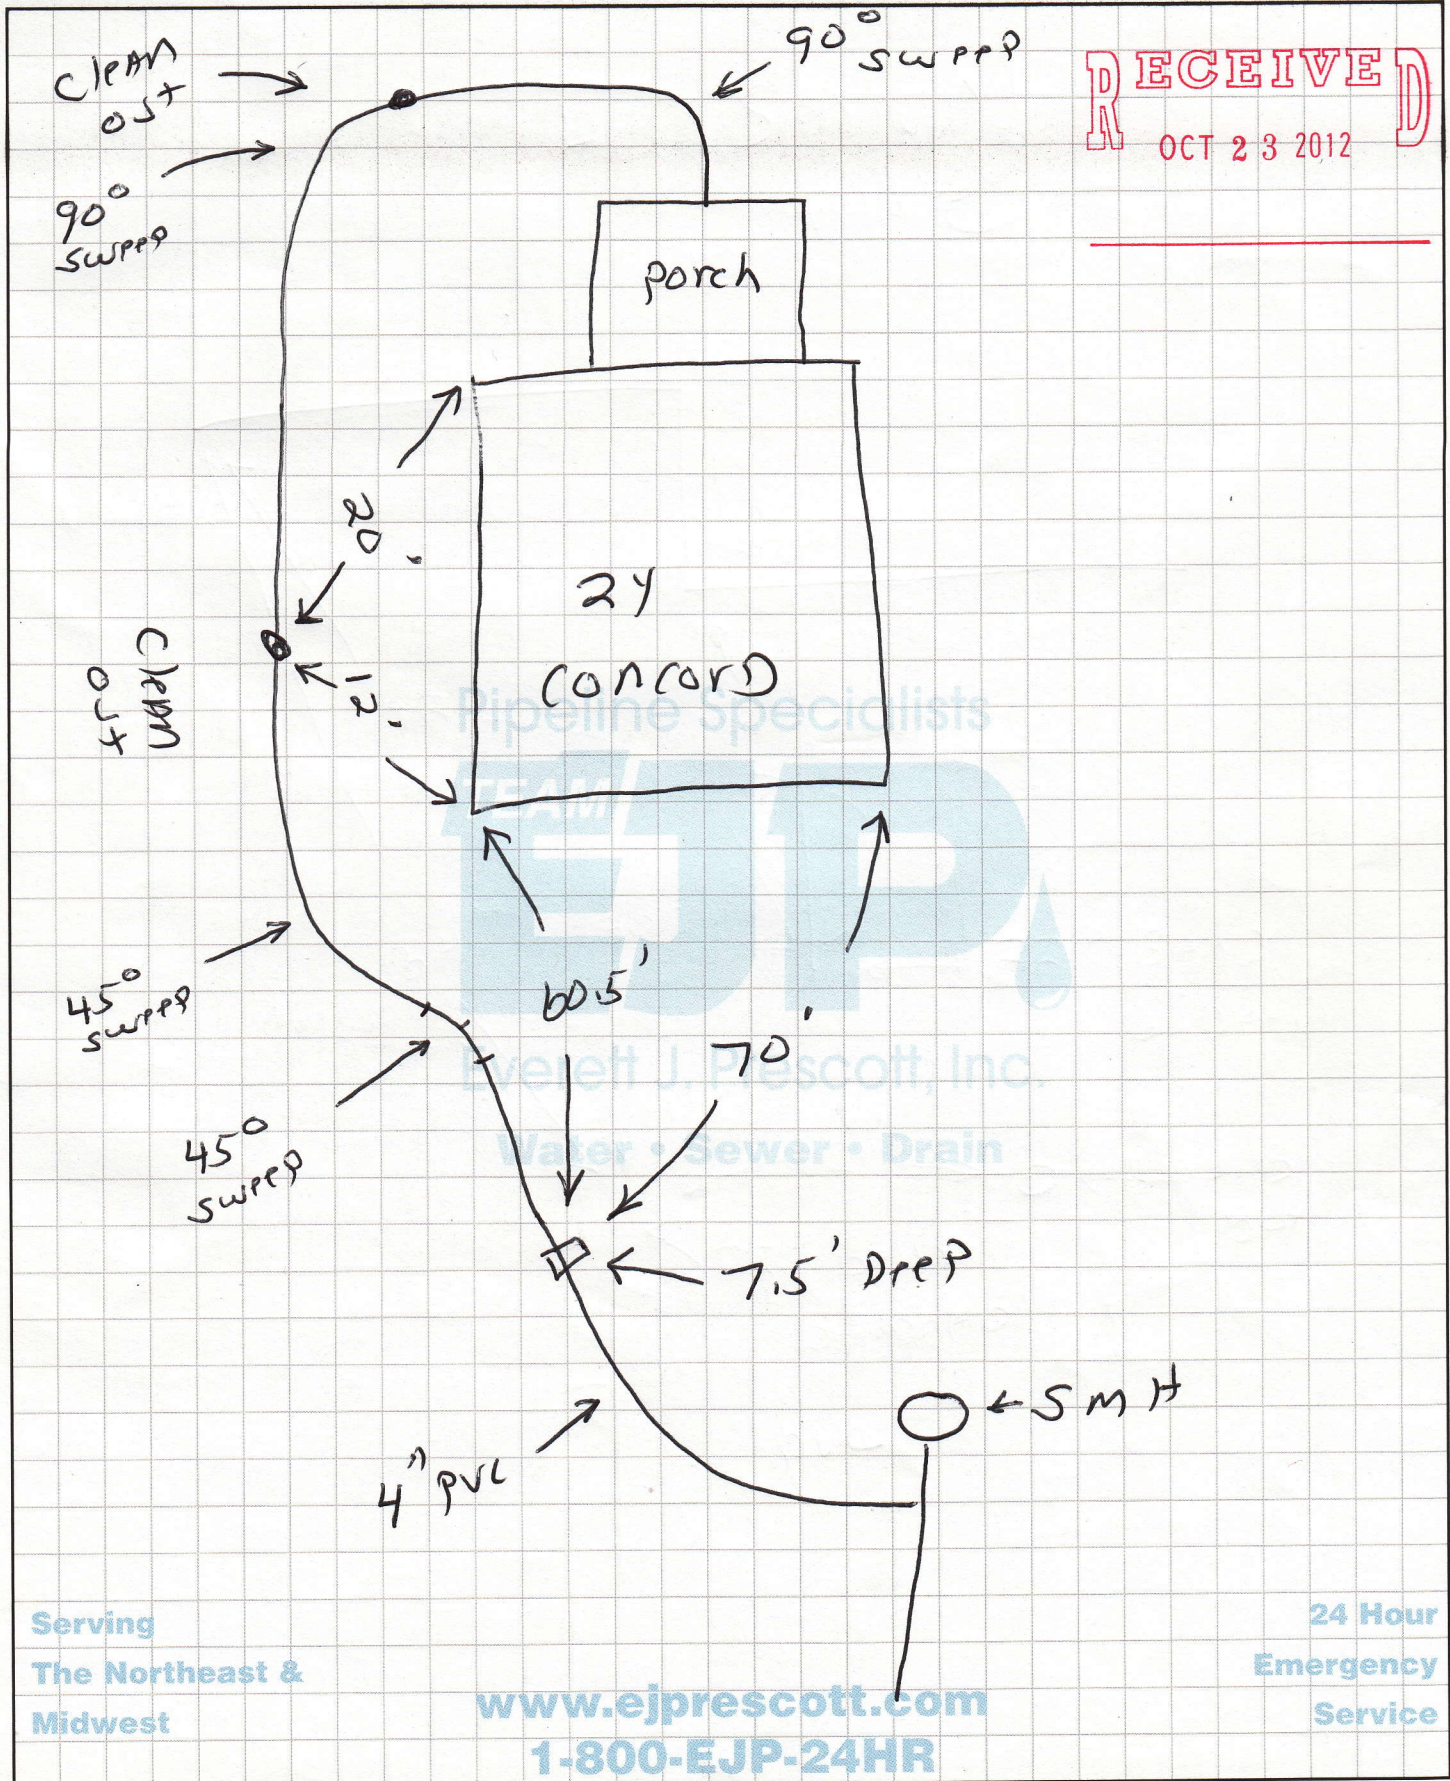 Clean
out
90° sweep
RECEIVED
OCT 23 2012
90°
sweep
porch
20'
24
Concord
Clean
out
12'
Pipeline Specialists
TEAM
EJP
45°
sweep
60.5'
70'
Everett J. Prescott, Inc.
45°
sweep
Water • Sewer • Drain
7.5' Deep
SMH
4" pvc
Serving
The Northeast &
Midwest
www.ejprescott.com
1-800-EJP-24HR
24 Hour
Emergency
Service